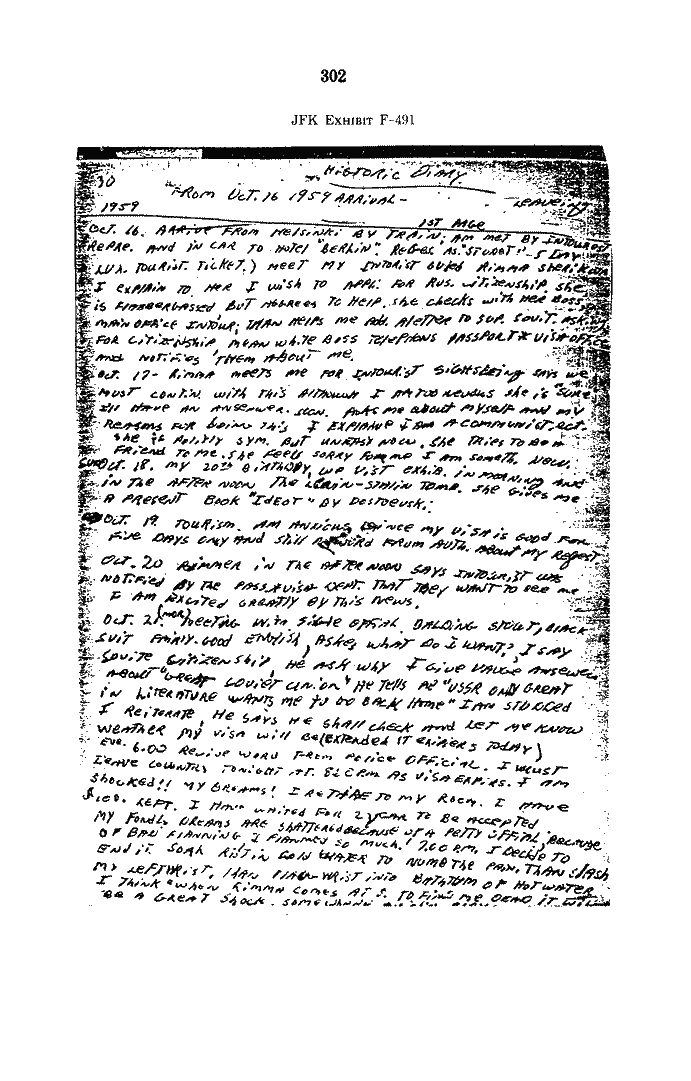 302
JFK EXHIBIT F-491
HISTORIC DIARY
30
FROM OCT. 16 1959 ARRIVAL - LEAVEING
1959
1ST PAGE
OCT. 16. ARRIVE FROM HELSINKI BY TRAIN; AM MET BY INTOURIST
REPRE. AND IN CAR TO HOTEL "BERLIN". REGES. AS "STUDET" - 5 DAY
LUX. TOURIST. TICKET.) MEET MY INTORIST GUIED RIMMA SHERIKOVA
I EXPLAIN TO HER I WISH TO APPLI. FOR RUS. CITIZENSHIP. SHE
IS FLABBERGASSED BUT AGGREES TO HELP. SHE CHECKS WITH HER BOSS,
MAIN OFFICE INTOUR; THAN HELPS ME ADD. A LETTER TO SUP. SOVIT. ASKING
FOR CITIZENSHIP, MEAN WHILE BOSS TELEPHONS PASSPORT & VISA OFFICE
AND NOTIFIES THEM ABOUT ME.
OCT. 17 - RIMMA MEETS ME FOR INTOURIST SIGHTSEEING SAYS WE
MUST CONTIN. WITH THIS ALTHOUGH I AM TOO NEVOUS SHE IS "SURE"
I'LL HAVE AN ANSEWER SOON. ASKS ME ABOUT MYSELF AND MY
REASONS FOR DOING THIS I EXPLAINE I AM A COMMUNIST, ECT.
SHE IS POLITLY SYM. BUT UNEASY NOW. SHE TRIES TO BE A
FRIEND TO ME. SHE FEELS SORRY FOR ME I AM SOMETH. NEW.
SUN OCT. 18. MY 20TH BIRTHDAY, WE VISIT EXHIB. IN MORNING AND
IN THE AFTER NOON THE LENIN-STALIN TOMB. SHE GIVES ME
A PRESENT BOOK "IDEOT" BY DOSTOEVSKI.
OCT. 19. TOURISM. AM ANXIOUS SINCE MY VISA IS GOOD FOR
FIVE DAYS ONLY AND STILL NO WORD FROM AUTH. ABOUT MY REQEST
OCT. 20 RIMMER IN THE AFTER NOON SAYS INTOURIST WAS
NOTIFIED BY THE PASS & VISA DEPT. THAT THEY WANT TO SEE ME
I AM EXCITED GREATLY BY THIS NEWS.
OCT. 21. (MOR) MEETING WITH SINGLE OFFIAL. BALDING STOUT, BLACK
SUIT FAIRLY. GOOD ENGLISH, ASKES WHAT DO I WANT?, I SAY
SOVITE CITIZENSHIP, HE ASK WHY I GIVE VAUGE ANSEWERS
ABOUT "GREAT SOVIET UNION" HE TELLS ME "USSR ONLY GREAT
IN LITERATURE WANTS ME TO GO BACK HOME" I AM STUNNED
I REITERATE, HE SAYS HE SHALL CHECK AND LET ME KNOW
WEATHER MY VISA WILL BE (EXTENDED IT EXIPERS TODAY)
EVE. 6.00 RECIVE WORD FROM POLICE OFFICIAL. I MUST
LEAVE COUNTRY TONIGHT AT. 8.00 P.M. AS VISA EXPIRS. I AM
SHOCKED!! MY DREAMS! I RETIRE TO MY ROOM. I HAVE
$100. LEFT. I HAVE WAITED FOR 2 YEAR TO BE ACCEPTED
MY FONDES DREAMS ARE SHATTERED BECAUSE OF A PETTY OFFIAL; BECAUSE
OF BAD PLANNING I PLANNED SO MUCH! 7.00 P.M. I DECIDE TO
END IT. SOAK RIST IN COLD WATER TO NUMB THE PAIN, THAN SLASH
MY LEFTWRIST. THAN PLAUG WRIST INTO BATHTUM OF HOT WATER
I THINK "WHEN RIMMA COMES AT 8. TO FIND ME DEAD IT WILL
BE A GREAT SHOCK. SOMEWHERE